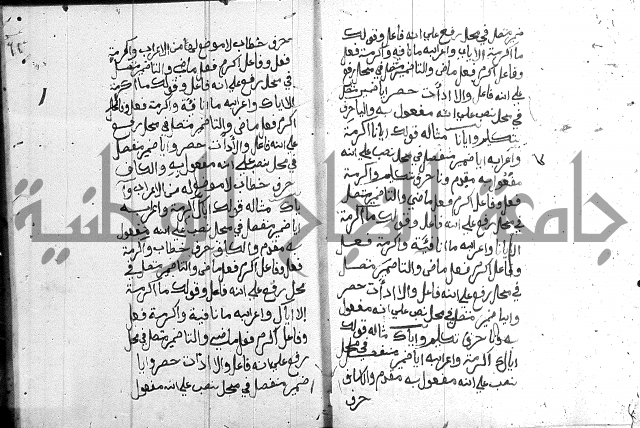 ضمير متصل في محل رفع على انه فاعل وقولك
ما اكرمت الا اياي واعرابه ما نافية واكرمت فعل
وفاعل اكرم فعل ماضي والتا ضمير متصل في محل رفع
على انه فاعل والا اداة حصر ايا ضمير منفصل
في محل نصب على انه مفعول به واليا حرف
تكلم وايانا مثاله قولك ايانا اكرمت
واعرابه ايا ضمير منفصل في محل نصب على انه
مفعول به مقدم ونا حرف تكلم واكرمت
فعل وفاعل اكرم فعل ماضي والتا ضمير متصل
في محل رفع على انه فاعل وقولك ما اكرمت
الا ايانا واعرابه ما نافية واكرمت فعل
وفاعل اكرم فعل ماضي والتا ضمير متصل
في محل رفع على انه فاعل والا اداة حصر
وايا ضمير منفصل في محل نصب على انه مفعول
به ونا حرف تكلم واياك مثاله قولك
اياك اكرمت واعرابه ايا ضمير منفصل في محل
نصب على انه مفعول به مقدم والكاف
حرف
حرف خطاب لا موضع لها من الاعراب واكرمت
فعل وفاعل اكرم فعل ماضي والتا ضمير متصل
في محل رفع على انه فاعل وقولك ما اكرمت
الا اياك واعرابه ما نافية واكرمت فعل وفاعل
اكرم فعل ماضي والتا ضمير متصل في محل رفع
على انه فاعل والا اداة حصر وايا ضمير منفصل
في محل نصب على انه مفعول به والكاف
حرف خطاب لا موضع له من الاعراب
مثاله قولك اياك اكرمت واعرابه
ايا ضمير منفصل في محل نصب على انه مفعول
به مقدم والكاف حرف خطاب واكرمت
فعل وفاعل اكرم فعل ماضي والتا ضمير متصل في
محل رفع على انه فاعل وقولك ما اكرمت
الا اياك واعرابه ما نافية واكرمت فعل
وفاعل اكرم فعل ماضي والتا ضمير متصل في محل
رفع على انه فاعل والا اداة حصر وايا
ضمير منفصل في محل نصب على انه مفعول
جامعة النجاح الوطنية